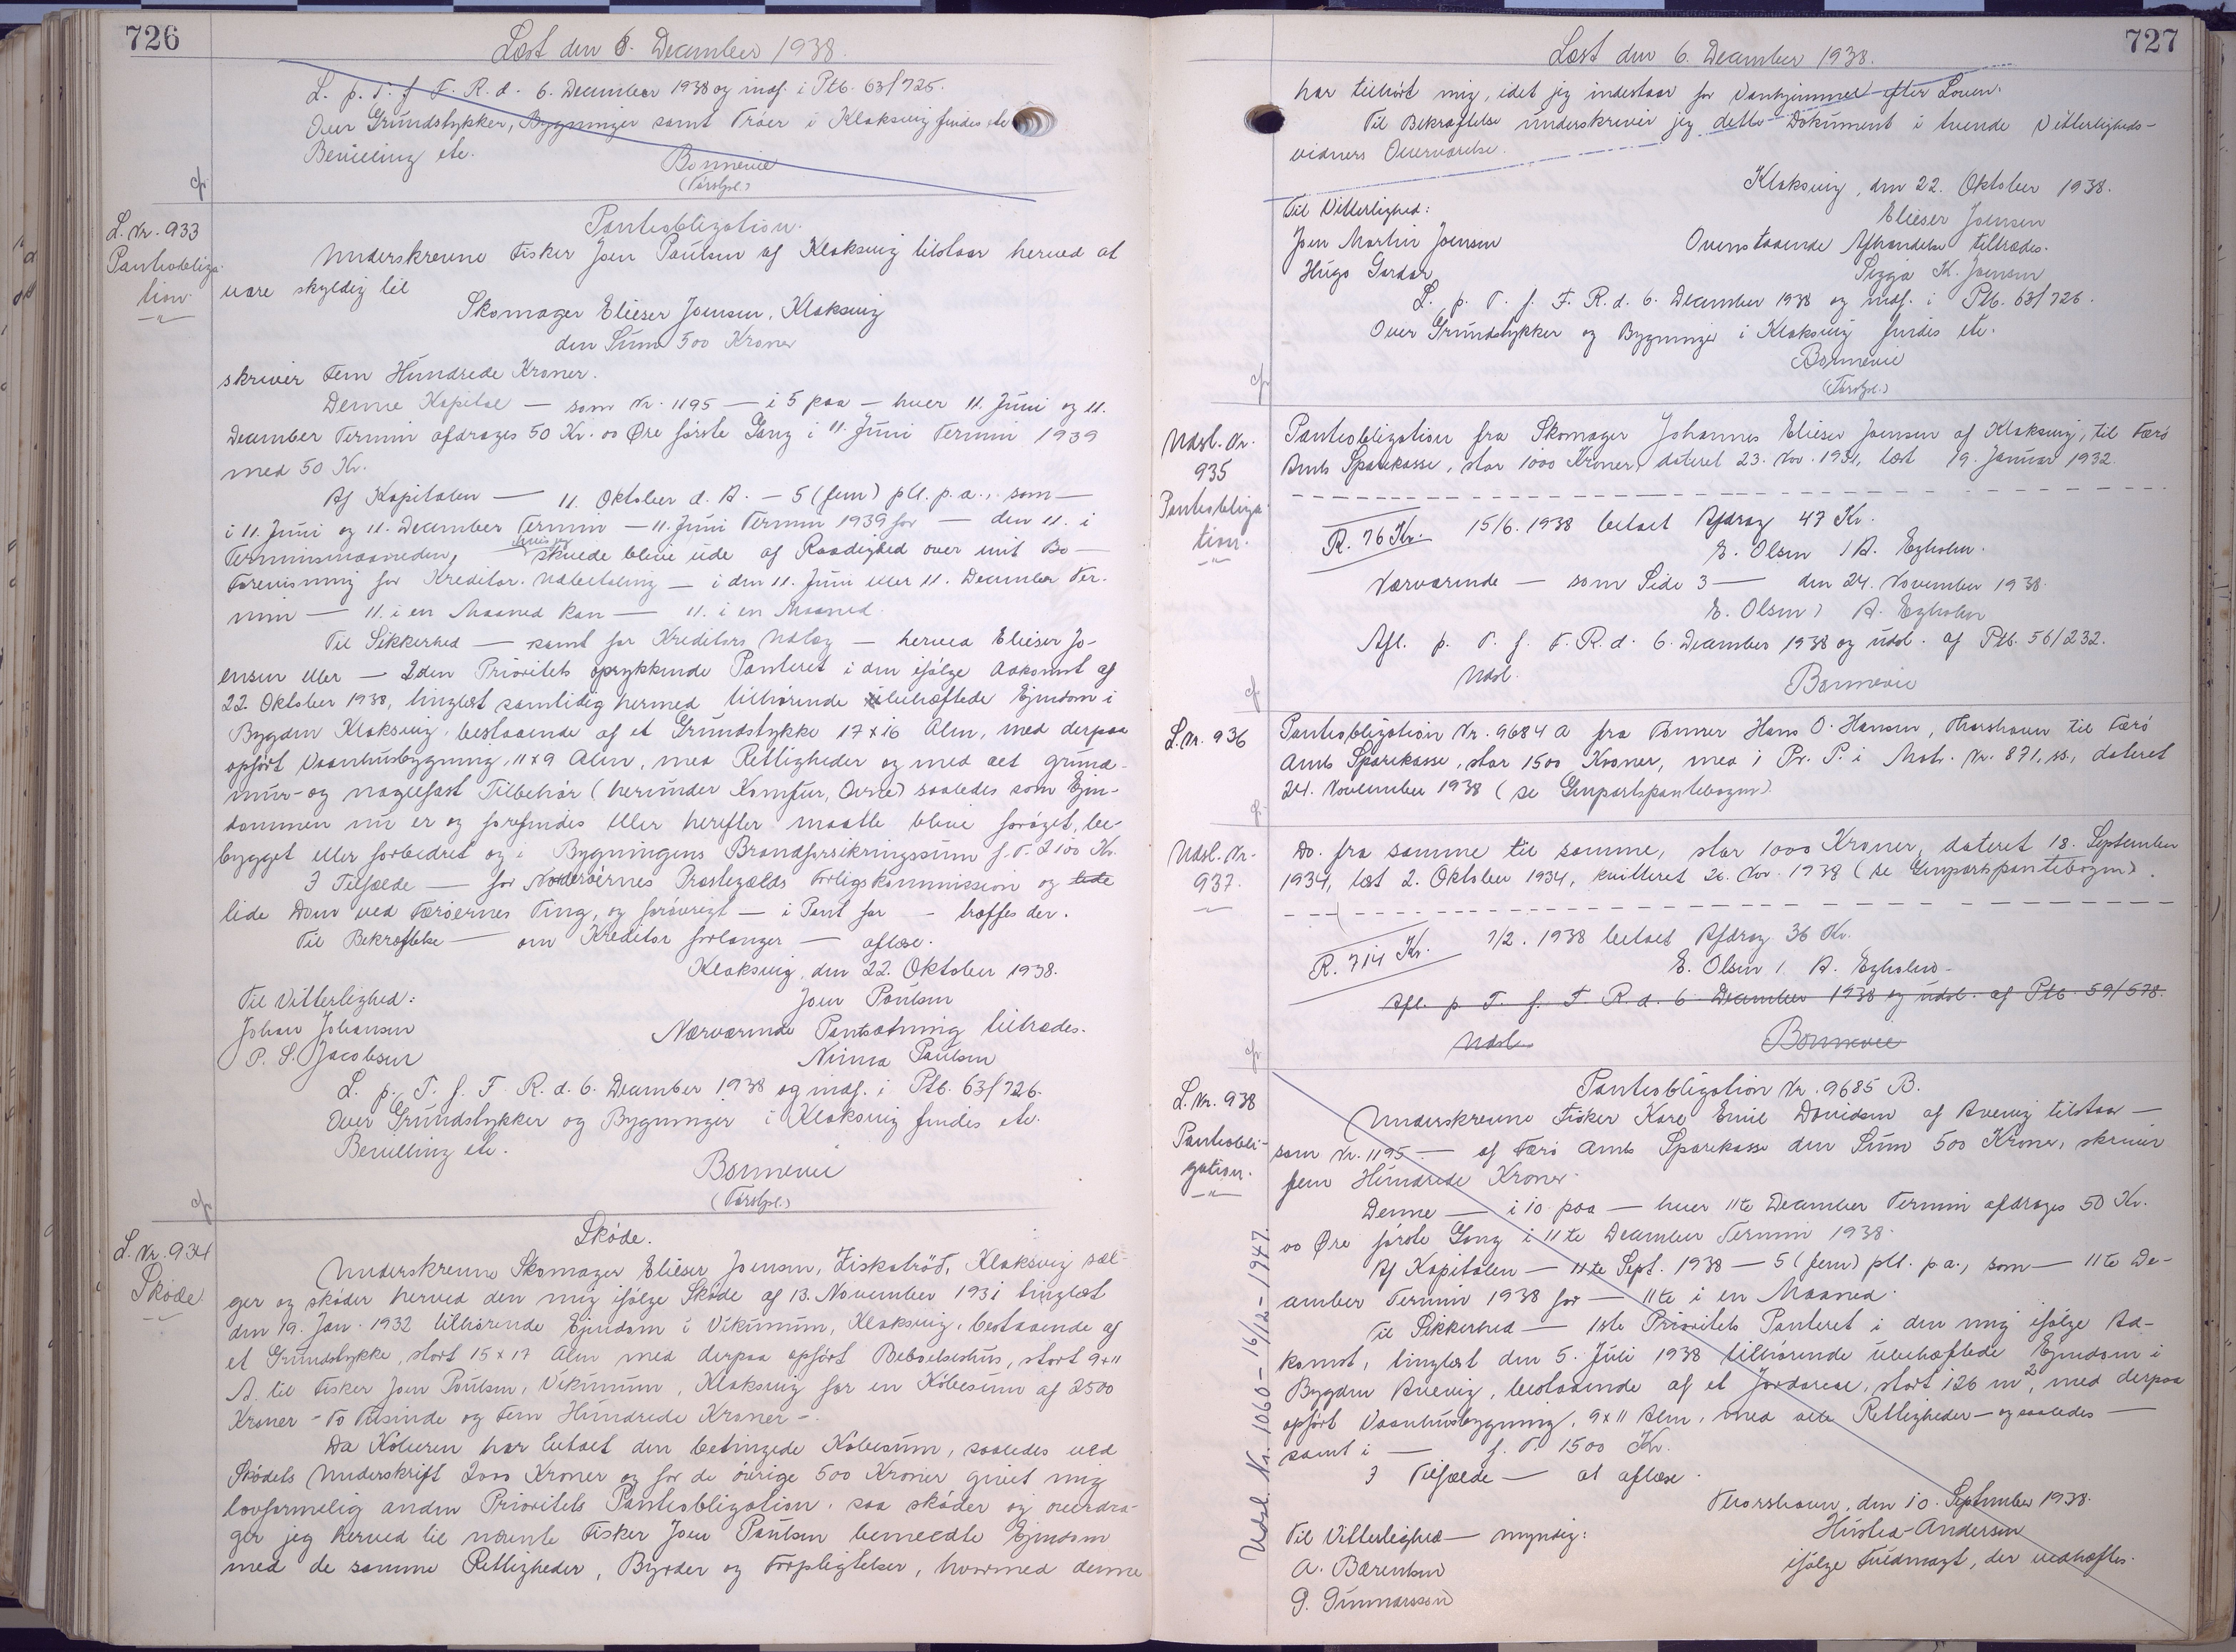 726
Læst den 6. December 1938.
L. p. T. f. F. R. d. 6. December 1938 og indf. i Ptb. 63/725.
Over Grundstykker, Bygninger samt Tröer i Klaksvig findes etc
Bevilling etc.
Bornevie
(Törsfgl.)
L. Nr. 933
Pantobliga-
tion.
Pantobligation.
Underskrevne Fisker Joen Poulsen af Klaksvig tilstaar herved at
være skyldig til
Skomager Elieser Joensen, Klaksvig
den Sum 500 Kroner
skriver Fem Hundrede Kroner.
Denne Kapital — som Nr. 1195 — i 5 paa — hver 11. Juni og 11.
December Termin afdrages 50 Kr. 00 Øre förste Gang i 11. Juni Termin 1939
med 50 Kr.
Af Kapitalen — 11. Oktober d. A. — 5 (fem) pCt. p. a., som —
i 11. Juni og 11. December Termin — 11. Juni Termin 1939 for — den 11. i
Terminsmaaneden, skuede blive ude af Raadighed over mit Bo —
Forevisning for Kreditor. Udbetaling — i den 11. Juni eller 11. December Ter-
min — 11. i en Maaned kan — 11. i en Maaned.
Til Sikkerhed — samt for Kreditors Udlæg — herved Elieser Jo-
ensen eller — 2den Prioritets oprykkende Panteret i den ifölge Adkomst af
22. Oktober 1938, tinglæst samtidig hermed tilhörende übehæftede Ejendom i
Bygden Klaksvig, bestaaende af et Grundstykke 17 x 16 Alen, med derpaa
opfört Vaanhusbygning, 11 x 9 Alen, med Rettigheder og med det grund-
mur- og naglefast Tilbehör (herunder Komfur, Ovne) saaledes som Ejen-
dommen nu er og forefindes eller herefter maatte blive foröget, be-
bygget eller forbedret og i Bygningens Brandforsikringssum f. T. 2100 Kr.
I Tilfælde — for Norderöernes Præstegælds Forligskommission og lide
lide Dom ved Færöernes Ting, og forövrigt — i Pant for — træffes der.
Til Bekræftelse — om Kreditor forlanger — aflæse.
Klaksvig, den 22. Oktober 1938.
Til Vitterlighed: Joen Poulsen
Johan Johansen Nærværende Pantsætning tiltrædes.
P. S. Jacobsen Ninna Poulsen
L. p. T. f. F. R. d. 6. December 1938 og indf. i Ptb. 63/726.
Over Grundstykker og Bygninger i Klaksvig findes etc.
Bevilling etc.
Bornevie
(Törsfgl.)
L. Nr. 934
Sköde
Sköde.
Underskrevne Skomager Elieser Joensen, Fiskatröð, Klaksvig sæl-
ger og sköder herved den mig ifölge Sköde af 13. November 1931 tinglæst
den 19. Jan. 1932 tilhörende Ejendom i Vikunum, Klaksvig, bestaaende af
et Grundstykke, stort 15 x 17 Alen med derpaa opfört Beboelseshus, stort 9 x 11
A. til Fisker Joen Poulsen, Vikunum, Klaksvig for en Köbesum af 2500
Kroner - To Tusinde og Fem Hundrede Kroner -.
Da Köberen har betalt den betingede Köbesum, saaledes ved
Sködets Underskrift 2000 Kroner og for de övrige 500 Kroner givet mig
lovformelig anden Prioritets Pantobligation, saa sköder og overdra-
ger jeg herved til nævnte Fisker Joen Poulsen bemeldte Ejendom
med de samme Rettigheder, Byrder og Forpligtelser, hvormed denne
727
Læst den 6. December 1938.
har tilhört mig, idet jeg indestaar for Vanhjemmel efter Loven.
Til Bekræftelse underskriver jeg dette Dokument i tvende Vitterligheds-
vidners Overværelse.
Klaksvig, den 22. Oktober 1938.
Til Vitterlighed: Elieser Joensen
Joen Martin Joensen Ovenstaaende Afhændelse tiltrædes.
Hugo Gardar Sigga K. Joensen
L. p. T. f. F. R. d. 6. December 1938 og indf. i Ptb. 63/726.
Over Grundstykker og Bygninger i Klaksvig findes etc.
Bornevie
(Törsfgl.)
Udsl. Nr.
935
Pantobliga-
tion.
Pantobligation fra Skomager Johannes Elieser Joensen af Klaksvig, til Færö
Amts Sparekasse, stor 1000 Kroner, dateret 23. Nov. 1931, læst 19. Januar 1932.
R. 76 Kr. 15/6. 1938 betalt Afdrag 47 Kr.
E. Olsen / A. Egholm.
Nærværende — som Side 3 — den 24. November 1938.
E. Olsen / A. Egholm
Afl. p. T. f. F. R. d. 6. December 1938 og udsl. af Ptb. 56/232.
Udsl. Bornevie
L. Nr. 936
Pantobligation Nr. 9684 A fra Tömrer Hans O. Hansen, Thorshavn til Færö
Amts Sparekasse, stor 1500 Kroner, med 1 Pr. P. i Matr. Nr. 871, ss., dateret
24. November 1938 (se Genpartspantebogen)
Udsl. Nr.
937.
Do. fra samme til samme, stor 1000 Kroner, dateret 18. September
1934, læst 2. Oktober 1934, kvitteret 26. Nov. 1938 (se Genpartspantebogen).
R. 714 Kr. 7/2. 1938 betalt Afdrag 36 Kr.
E. Olsen / A. Egholm
Afl. p. T. f. F. R. d. 6. December 1938 og udsl. af Ptb. 59/578.
Udsl. Bornevie
L. Nr. 938
Pantobli-
gation.
Udsl. Nr. 1060 - 16/12 - 1947.
Pantobligation Nr. 9685 B.
Underskrevne Fisker Karl Emil Davidsen af Avevig tilstaar —
som Nr. 1195 — af Færö Amts Sparekasse den Sum 500 Kroner, skriver
fem Hundrede Kroner.
Denne — i 10 paa — hver 11te December Termin afdrages 50 Kr.
00 Øre förste Gang i 11te December Termin 1938.
Af Kapitalen — 11te Sept. 1938 — 5 (fem) pCt. p. a., som — 11te De-
cember Termin 1938 for — 11te i en Maaned.
Til Sikkerhed — 1ste Prioritets Panteret i den mig ifölge Ad-
komst, tinglæst den 5. Juli 1938 tilhörende übehæftede Ejendom i
Bygden Avevig, bestaaende af et Jordareal, stort 126 m², med derpaa
opfört Vaanhusbygning, 9 x 11 Alen, med alle Rettigheder — og saaledes —
samt i — f. T. 1500 Kr.
I Tilfælde — at aflæse.
Thorshavn, den 10. September 1938.
Til Vitterlighed — myndig: Husted-Andersen
A. Bærentsen ifölge Fuldmagt, der vedhæftes.
G. Gunnarsson